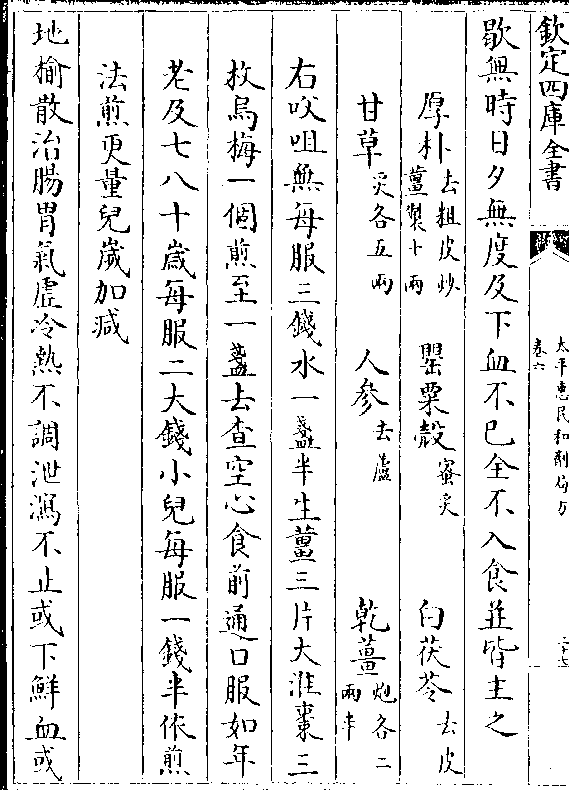 欽定四庫全書
太平惠民和劑局方
卷六
歇無時日夕無度及下血不已全不入食並皆主之
厚朴去粗皮炒薑製十兩 罌粟殻蜜炙 白茯苓去皮
甘草炙各五兩 人參去蘆 乾薑炮各二兩半
右㕮咀無每服三錢水一盞半生薑三片大淮棗三
枚烏梅一個煎至一盞去查空心食前通口服如年
老及七八十歲每服二大錢小兒每服一錢半依煎
法煎更量兒歲加減
地榆散治腸胃氣虛冷熱不調泄瀉不止或下鮮血或